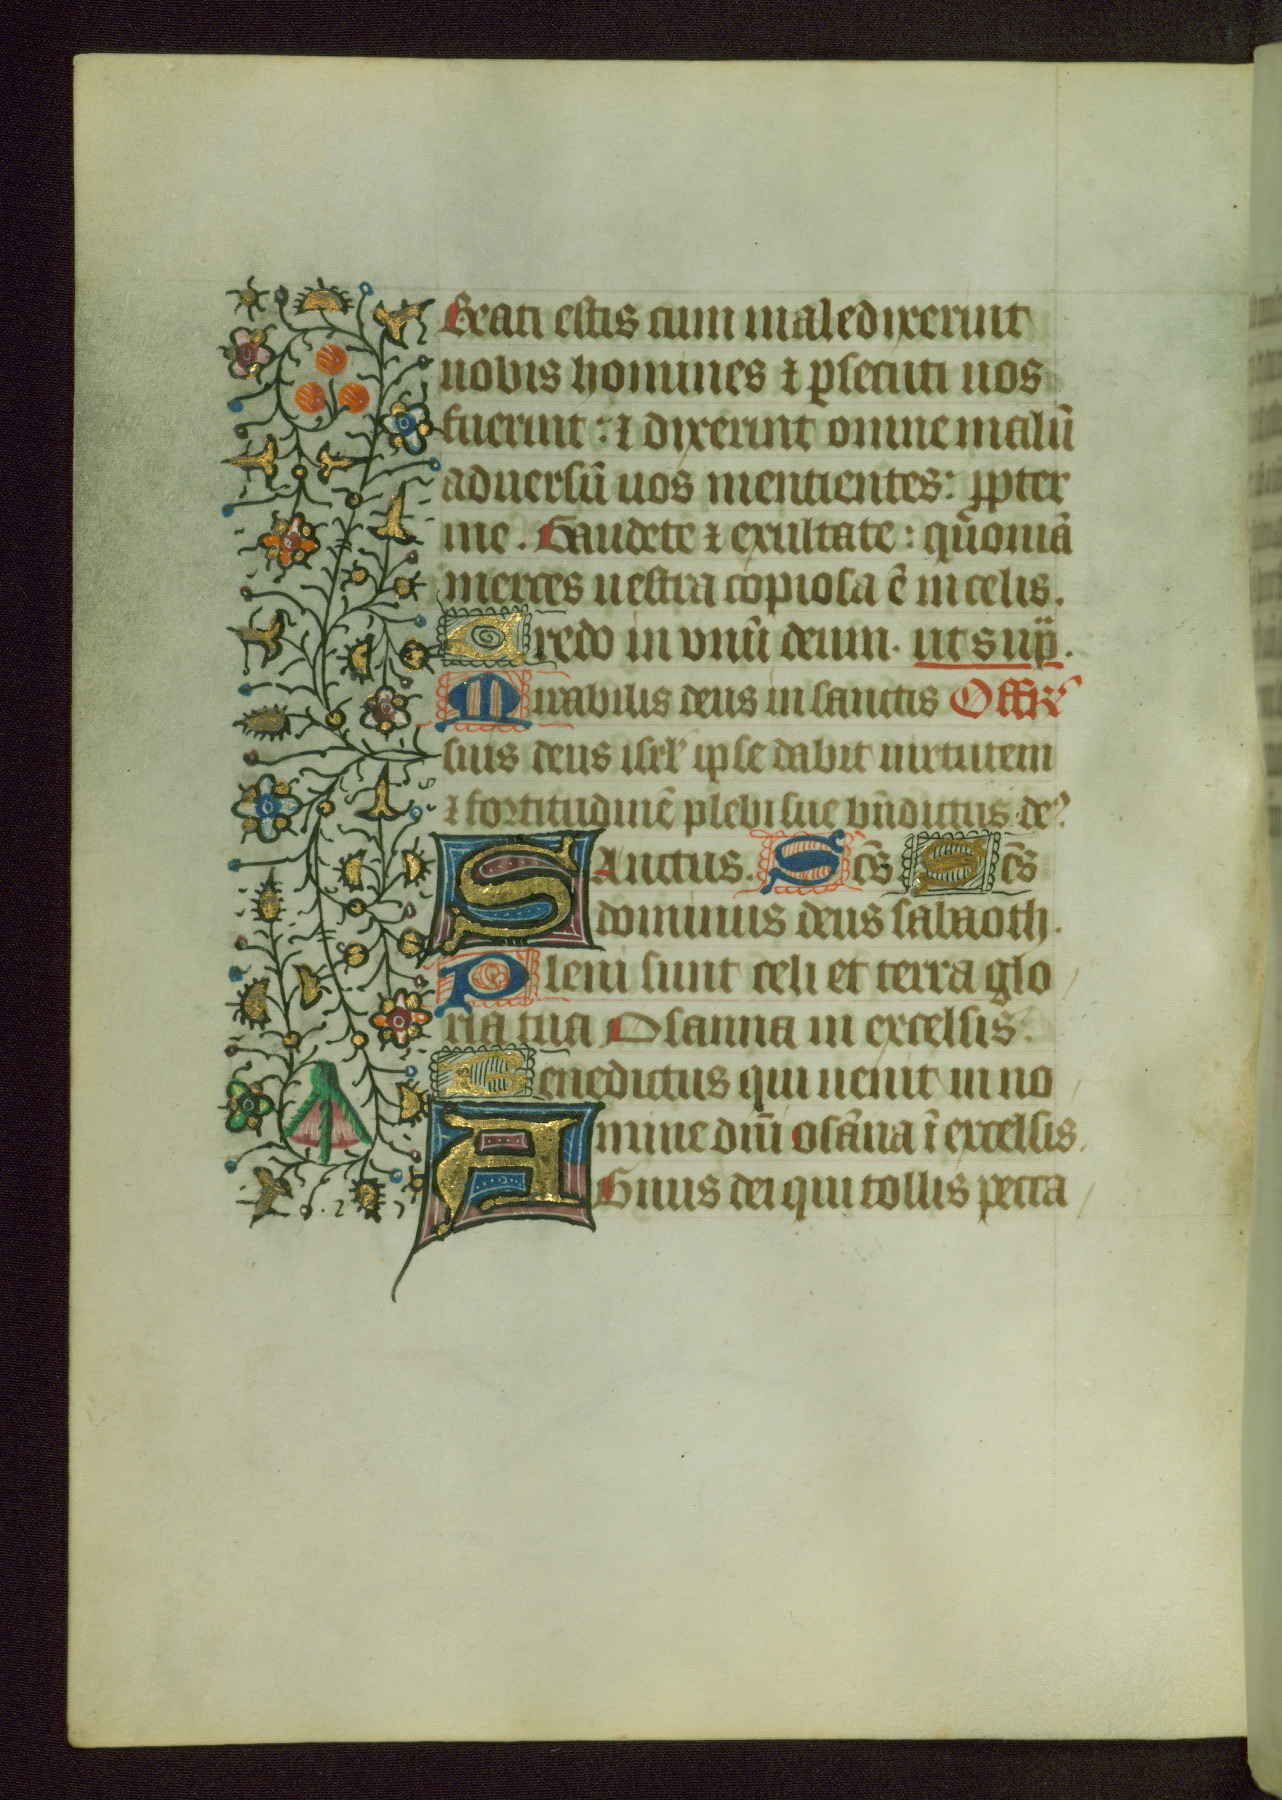 Beati estis cum maledixerunt
uobis homines ⁊ ꝑsecuti uos
fuerint : ⁊ dixerint omne malū
aduersū uos mentientes : ꝓpter
me . Gaudete ⁊ exultate : qūoniā
merces uestra copiosa ē in celis .
Credo in vnū deum . ut sup̄ .
Mirabilis deus in sanctis Offꝝ
suis deus isrl̄ ipse dabit uirtutem
⁊ fortitudinē plebi sue bn̄dictus deꝰ
SAnctus . Sc̄s Sc̄s
dominus deus sabaoth .
Pleni sunt celi et terra glo
ria tua Osanna in excelsis .
Benedictus qui uenit in no
mine dn̄i osān̄a ī excelsis .
AGnus dei qui tollis pecca